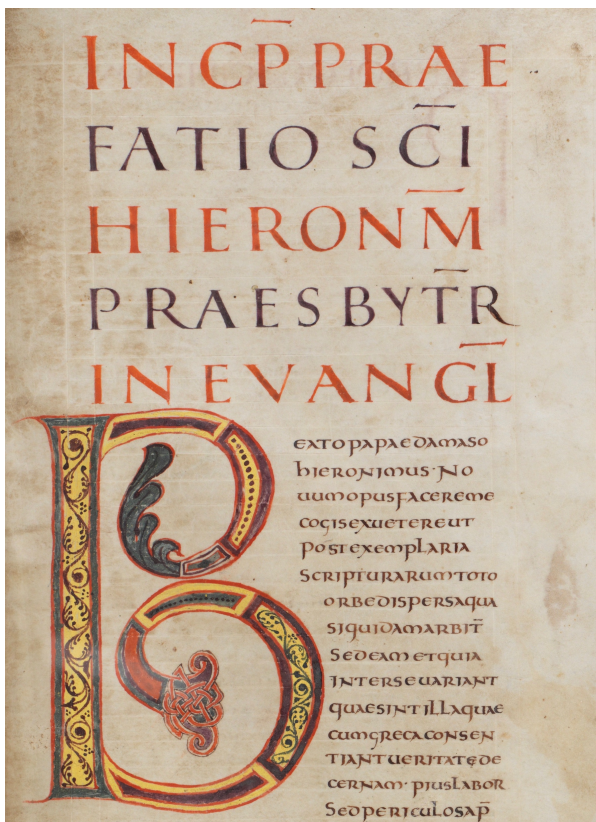 INCP̄ PRAE
FATIO SC̄I
HIERONM̄
PRAESBYT̄R
IN EVANḠL
B
EATO PAPAE DAMASO
HIERONIMUS· NO
UUM OPUS FACERE ME
COGIS EX UETERE UT
POST EXEMPLARIA
SCRIPTURARUM TOTO
ORBE DISPERSA QUA
SI QUIDAM ARBIT̄
SEDEAM ET QUIA
INTER SE UARIANT
QUAE SINT ILLA QUAE
CUM GRECA CONSEN
TIANT UERITATE DE
CERNAM· PIUS LABOR
SED PERICULOSA P̄